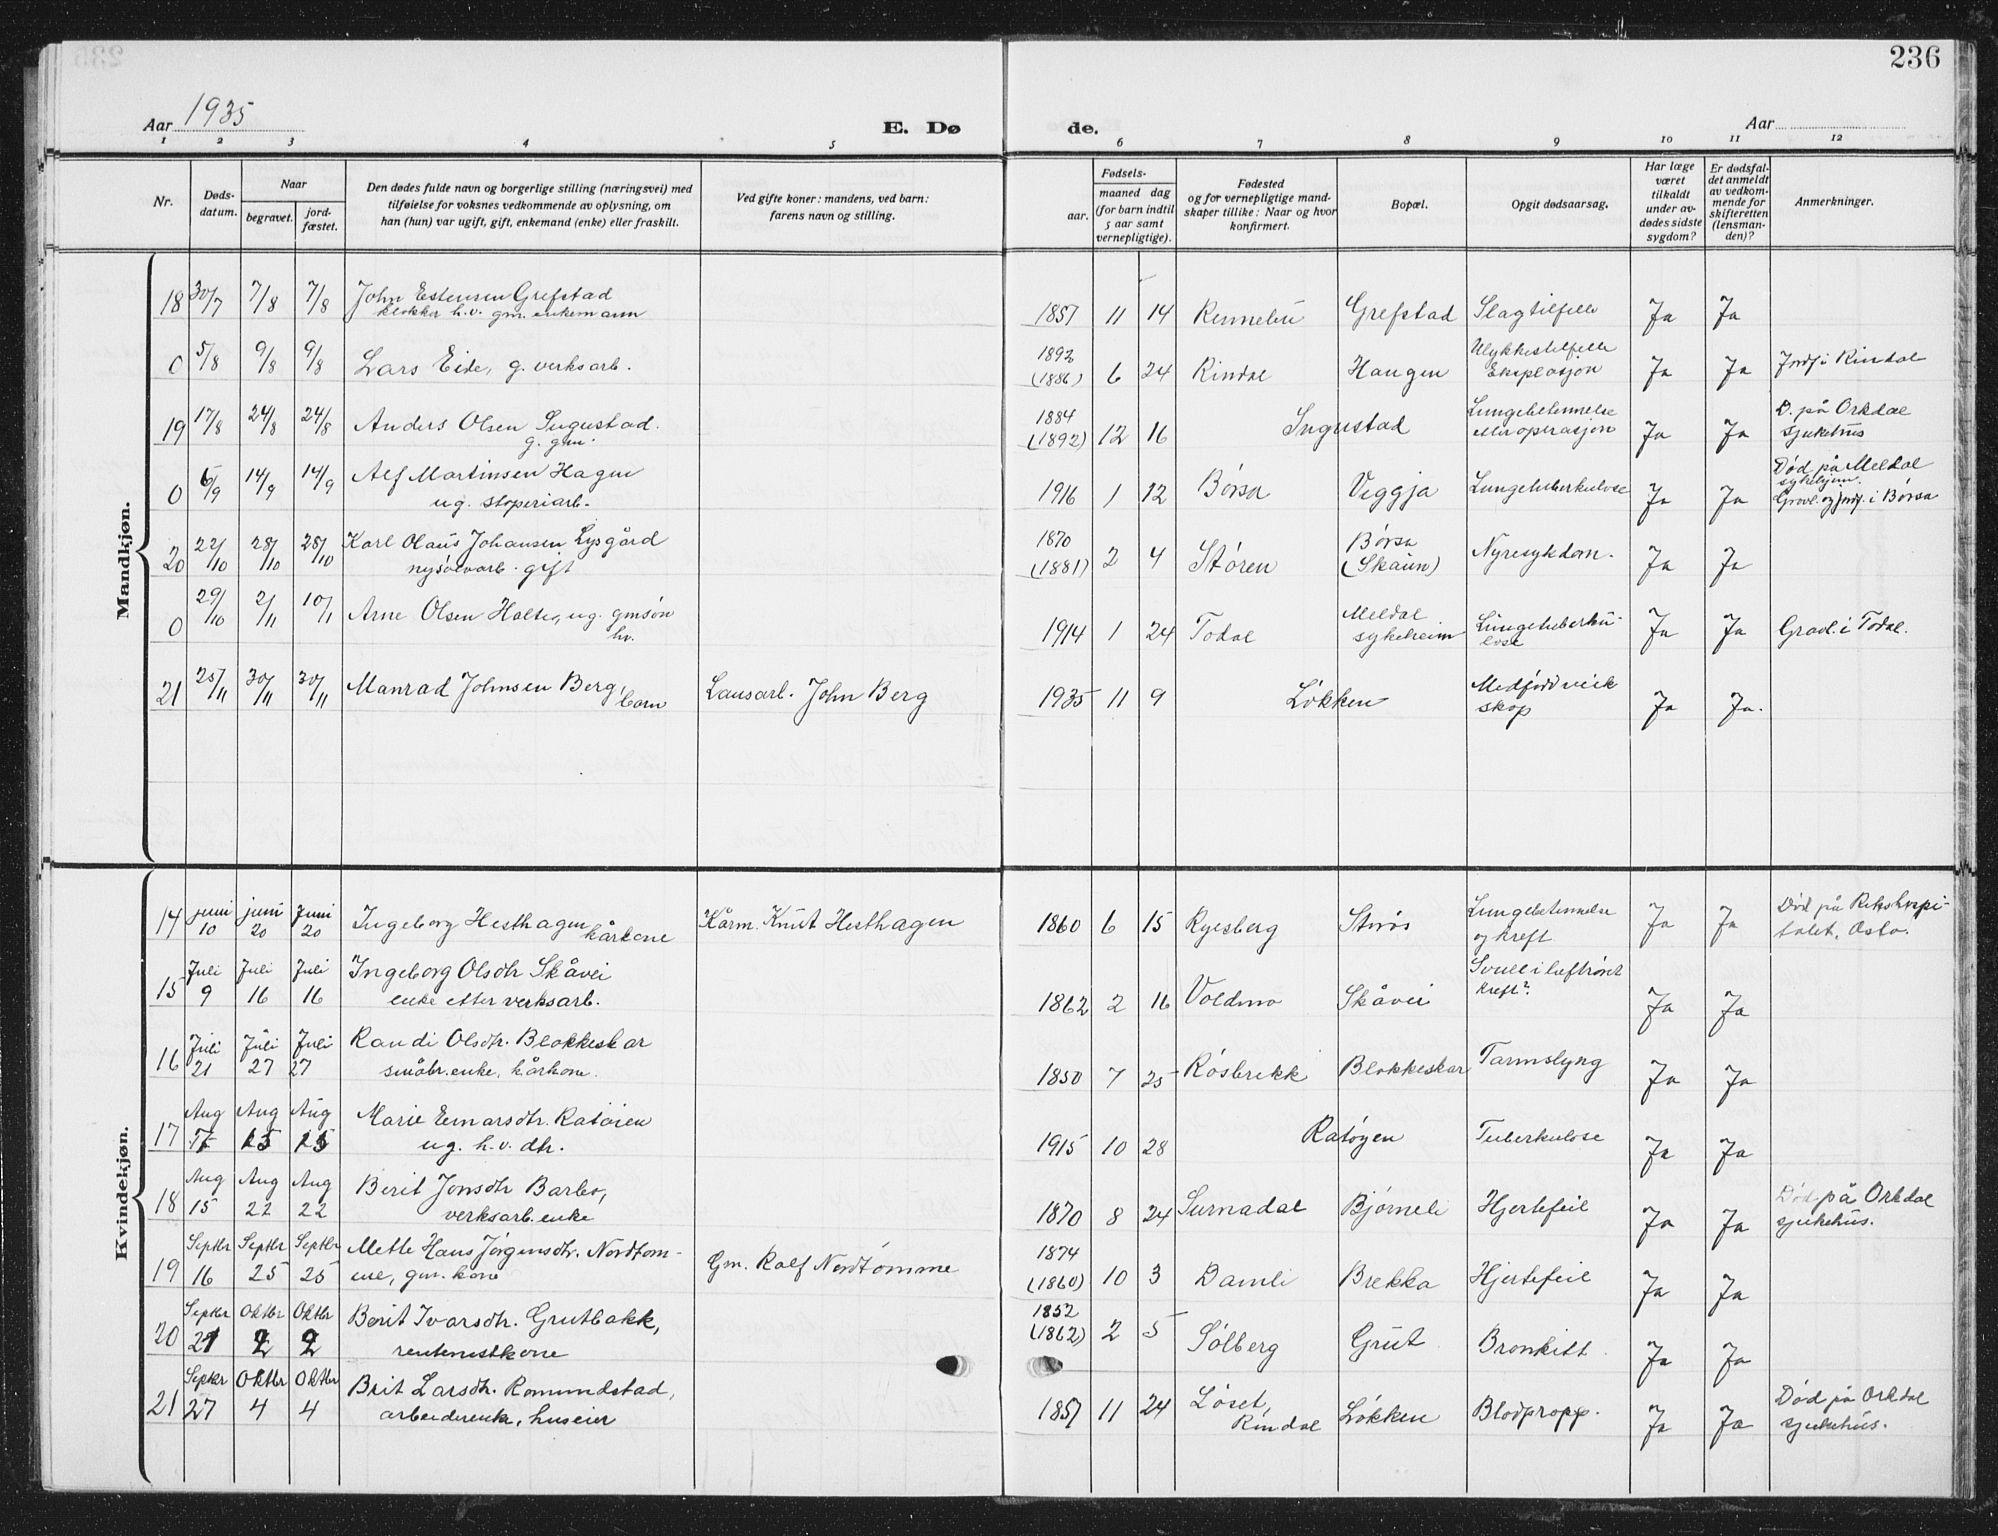 236
Aar 1935
E. Dø
de.
Aar
1 2 3 4 5 6 7 8 9 10 11 12
Nr.
Døds-
datum.
Naar
begravet.
jord-
fæstet.
Den dødes fulde navn og borgerlige stilling (næringsvei) med
tilføielse for voksnes vedkommende av oplysning, om
han (hun) var ugift, gift, enkemand (enke) eller fraskilt.
Ved gifte koner: mandens, ved barn:
farens navn og stilling.
Fødsels-
aar.
maaned dag
(for barn indtil
5 aar samt
vernepligtige).
Fødested
og for vernepligtige mand-
skaper tillike: Naar og hvor
konfirmert.
Bopæl.
Opgit dødsaarsag.
Har læge
været
tilkaldt
under av-
dødes sidste
sygdom?
Er dødsfal-
det anmeldt
av vedkom-
mende for
skifteretten
(lensman-
den)?
Anmerkninger.
Mandkjøn.
18 30/7 7/8 7/8 John Estensen Grefstad
klokker h.v. gm. enkemann
1857 11 14 Rennebu Grefstad Slagtilfelle Ja Ja
0 5/8 9/8 9/8 Lars Eide, g. verksarb.
1892
(1886) 6 24 Rindal Haugen Ulykkestilfelle
Eksplosjon Ja Ja Jordf. i Rindal
19 17/8 24/8 24/8 Anders Olsen Ingustad.
g. gm.
1884
(1892) 12 16 Ingustad Lungebetennelse
etter operasjon Ja Ja D. på Orkdal
sjukehus
0 6/9 14/9 14/9 Alf Martinsen Hagen
ug. stoperiarb.
1916 1 12 Børsa Viggja Lungetuberkulose Ja Ja Død på Meldal
sykehjem.
Gravl. og jordf. i Børsa
20 22/10 28/10 28/10 Karl Olaus Johansen Lysgård
nysølvarb. gift
1870
(1881) 2 4 Støren Børsa
(Skaun) Nyresykdom. Ja Ja
0 29/10 2/11 10/1 Arne Olsen Halte, ug. gmsøn
hv.
1914 1 24 Todal Meldal
sykeheim Lungetuberku-
lose Ja Ja Gravl. i Todal.
21 25/11 30/11 30/11 Manrad Johnsen Berg,
barn Lausarb. John Berg
1935 11 9 Løkken Medfødd veik
skap Ja Ja.
Kvindekjøn.
14 juni 10 juni 20 Juni 20 Ingeborg Hesthagen
kårkone Kårm. Knut Hesthagen
1860 6 15 Ryesberg Lungebetennelse
og kreft Ja Ja Død på Rikshospi-
talet, Oslo.
15 Juli 9 Juli 16 Juli 16 Ingeborg Olsdtr Skåvei
enke etter verksarb.
1862 2 16 Voldmo Skåvei Svull i luftrøret
Kreft? Ja Ja
16 Juli 21 Juli 27 Juli 27 Randi Olsdtr. Blokkeskar
småbr.enke, kårkone.
1850 7 25 Røsbrekk Blokkeskar Tarmslyng Ja Ja
17 Aug Aug 15 Aug 15 Marie Einarsdtr. Ratøien
ug. h.v. dtr.
1915 10 28 Ratøyen Tuberkulose Ja Ja
18 Aug 15 Aug 22 Aug 22 Berit Jonsdtr Barbo,
verksarb.enke
1870 8 24 Surnadal Bjørneli Hjertefeil Ja Ja Død på Orkdal
sjukehus.
19 Septbr 16 Septbr 25 Septbr 25 Mette Hans Jørgensdtr. Nordtøm-
me, gm. kone Gm. Rolf Nordtømme
1874
(1860) 10 3 Damli Brekka Hjertefeil Ja Ja
20 Septbr 21 Oktbr 2 Oktbr 2 Berit Ivarsdtr. Grutbakk,
rentenistkone
1852
(1862) 2 5 Sølberg Grut Bronkitt Ja Ja
21 Septbr 27 Oktbr 4 Oktbr 4 Brit Larsdtr. Romundstad,
arbeiderenke, huseier
1857 11 24 Løset,
Rindal Løkken Blodpropp. Ja Ja Død på Orkdal
sjukehus.